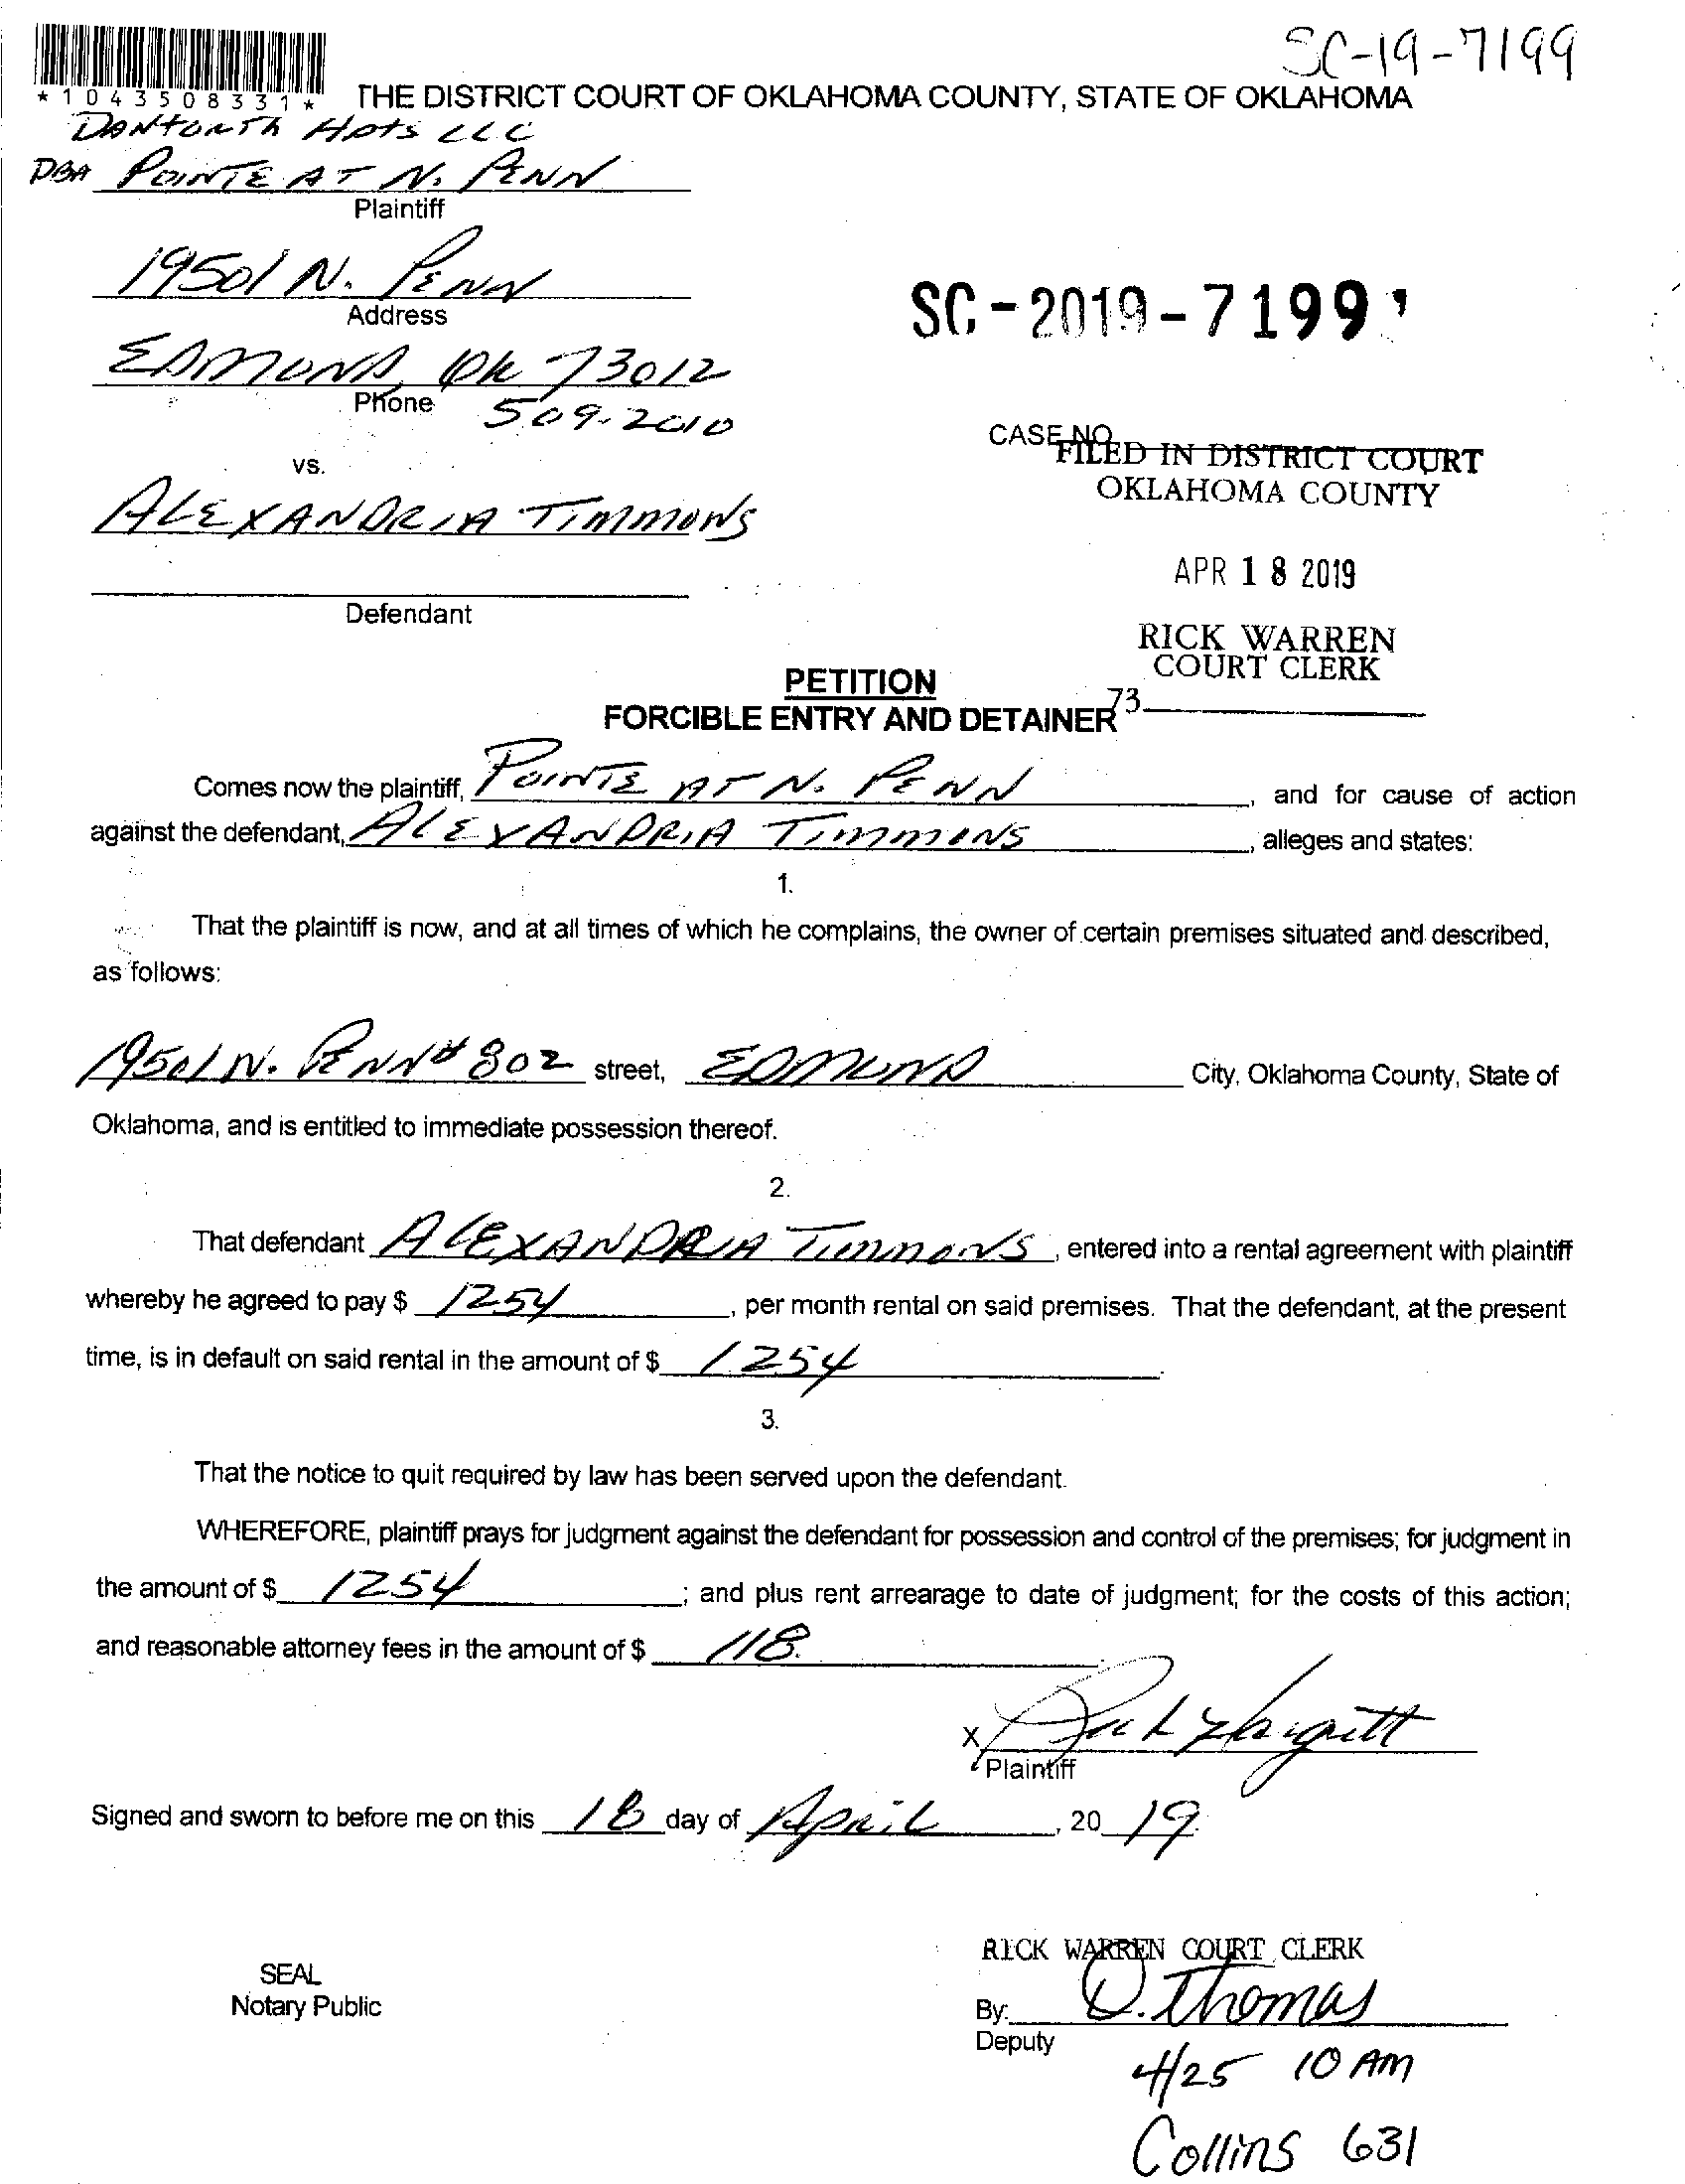 SC-19-7199
*1043508331*
THE DISTRICT COURT OF OKLAHOMA COUNTY, STATE OF OKLAHOMA
DANFORTH Apts LLC
DBA POINTE AT N. PENN
Plaintiff
19501 N. PENN
Address
SC-2019-7199
EDMOND, OK 73012
Phone 509-2010
CASE NO.
FILED IN DISTRICT COURT
OKLAHOMA COUNTY
vs.
ALEXANDRIA TIMMONS
APR 18 2019
Defendant
RICK WARREN
COURT CLERK
PETITION
73
FORCIBLE ENTRY AND DETAINER
Comes now the plaintiff, POINTE AT N. PENN, and for cause of action
against the defendant, ALEXANDRIA TIMMONS, alleges and states:
1.
That the plaintiff is now, and at all times of which he complains, the owner of certain premises situated and described,
as follows:
19501 N. PENN # 802 street, EDMOND City, Oklahoma County, State of
Oklahoma, and is entitled to immediate possession thereof.
2.
That defendant ALEXANDRIA TIMMONS, entered into a rental agreement with plaintiff
whereby he agreed to pay $ 1254, per month rental on said premises. That the defendant, at the present
time, is in default on said rental in the amount of $ 1254.
3.
That the notice to quit required by law has been served upon the defendant.
WHEREFORE, plaintiff prays for judgment against the defendant for possession and control of the premises; for judgment in
the amount of $ 1254; and plus rent arrearage to date of judgment; for the costs of this action;
and reasonable attorney fees in the amount of $ 118.
X
Plaintiff
Signed and sworn to before me on this 18 day of April, 20 19.
RICK WARREN COURT CLERK
SEAL
Notary Public
By: D. Thomas
Deputy
4/25 10 AM
Collins 631